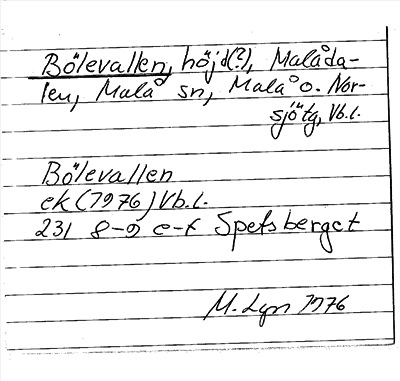 Bölevallen, höjd(?), Malåda-
len, Malå sn, Malå o. Nor-
sjötg, Vb.l.
Bölevallen
ek (1976) Vb.l.
231 8-9 e-f Spetsberget
M. Lgn 1976